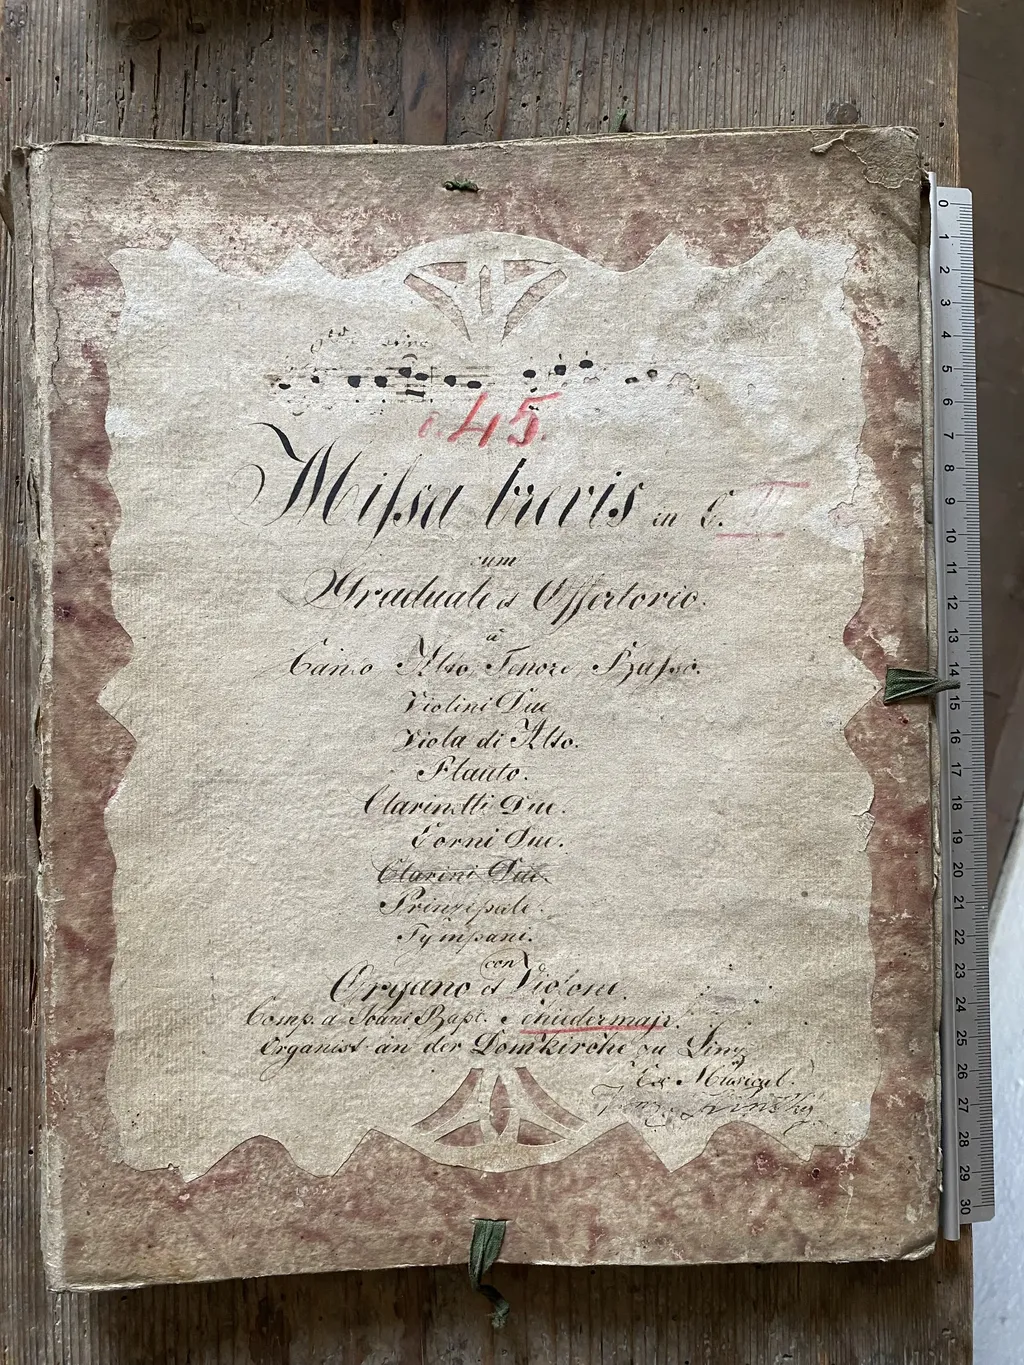 45.
Missa brevis in C. II
cum
Graduale et Offertorio.
à
Canto Alto, Tenore, Basso.
Violini Due
Viola di Alto.
Flauto.
Clarinetti Due.
Corni Due.
Clarini Due.
Prinzipale.
Tympani.
con
Organo et Violone.
Comp. a Joani Bapt. Schiedermayr.
Organist an der Domkirche zu Linz
Ex Musical.
0 1 2 3 4 5 6 7 8 9 10 11 12 13 14 15 16 17 18 19 20 21 22 23 24 25 26 27 28 29 30